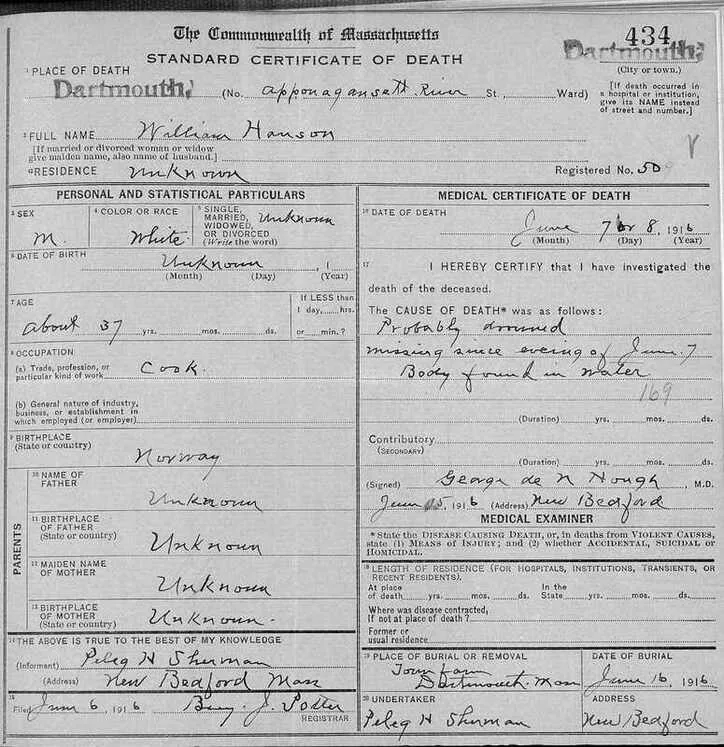 The Commonwealth of Massachusetts
434
STANDARD CERTIFICATE OF DEATH
Dartmouth,
(City or town.)
1 PLACE OF DEATH
Dartmouth,
(No. Apponagansett River St., Ward)
[If death occurred in a hospital or institution, give its NAME instead of street and number.]
2 FULL NAME William Hanson
[If married or divorced woman or widow give maiden name, also name of husband.]
RESIDENCE Unknown
Registered No. 50
PERSONAL AND STATISTICAL PARTICULARS
3 SEX
M.
4 COLOR OR RACE
White
5 SINGLE, MARRIED, WIDOWED, OR DIVORCED (Write the word)
Unknown
6 DATE OF BIRTH
Unknown , 1
(Month) (Day) (Year)
7 AGE
About 37 yrs. mos. ds.
If LESS than
1 day, hrs.
or min.?
8 OCCUPATION
(a) Trade, profession, or particular kind of work Cook.
(b) General nature of industry, business, or establishment in which employed (or employer)
9 BIRTHPLACE
(State or country)
Norway
PARENTS
10 NAME OF FATHER
Unknown
11 BIRTHPLACE OF FATHER
(State or country)
Unknown
12 MAIDEN NAME OF MOTHER
Unknown
13 BIRTHPLACE OF MOTHER
(State or country)
Unknown.
14 THE ABOVE IS TRUE TO THE BEST OF MY KNOWLEDGE
(Informant) Peleg H Sherman
(Address) New Bedford Mass
15
Filed June 6, 1916 Benj. J. Potter
REGISTRAR
MEDICAL CERTIFICATE OF DEATH
16 DATE OF DEATH
June 7 or 8, 1916
(Month) (Day) (Year)
17 I HEREBY CERTIFY that I have investigated the
death of the deceased.
The CAUSE OF DEATH* was as follows:
Probably drowned
missing since evening of June 7
Body found in water
169
(Duration) yrs. mos. ds.
Contributory
(SECONDARY)
(Duration) yrs. mos. ds.
(Signed) George de N Hough, M.D.
June 15, 1916 (Address) New Bedford
MEDICAL EXAMINER
* State the DISEASE CAUSING DEATH, or, in deaths from VIOLENT CAUSES, state (1) MEANS OF INJURY; and (2) whether ACCIDENTAL, SUICIDAL or HOMICIDAL.
18 LENGTH OF RESIDENCE (FOR HOSPITALS, INSTITUTIONS, TRANSIENTS, OR RECENT RESIDENTS).
At place of death yrs. mos. ds. In the State yrs. mos. ds.
Where was disease contracted,
If not at place of death?
Former or
usual residence
19 PLACE OF BURIAL OR REMOVAL
Town Farm
Dartmouth Mass
DATE OF BURIAL
June 16, 1916
20 UNDERTAKER
Peleg H Sherman
ADDRESS
New Bedford